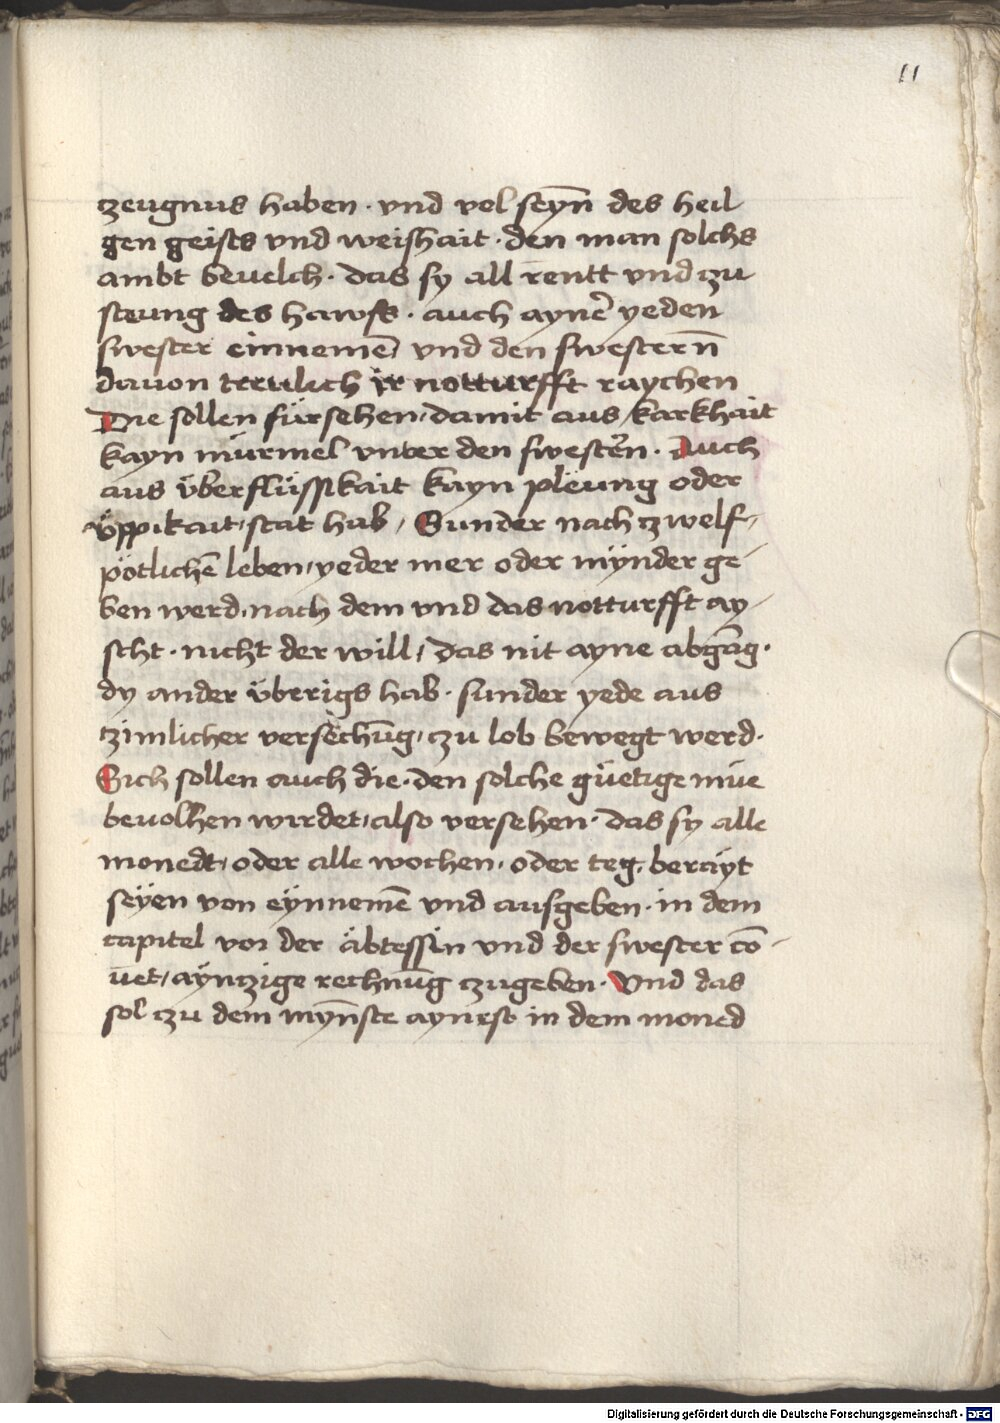 11
czeugnus haben · vnd vol seyn̄ des heil
gen geists vnd weishait · den man solchs
ambt beuelch · das sy all rentt vnd zu
steung des hawss · auch ayner̄ yeden
swester einnemē vnd den swestern̄
dauon treulich ir notturfft raychen
Die sollen fürsehen, damit aus karkhait
kayn mürmel vnter den swestern̄ · Auch
aus überflüssikait kayn plëung oder
üppikait, stat hab, Sunder nach zwelf-
pötlichē leben, yeder mer oder mynder ge-
ben werd, nach dem vnd das notturfft ay-
scht · nicht der will, das nit ayne abgāg ·
dy ander überigs hab · sunder yede aus
tzimlicher versechūg, czu lob bewegt werd ·
Sich sollen auch die · den solche güetige müe
beuolhen wirdet, also versehen · das sy alle
monedt, oder alle wochen, oder teg, berayt
seyen von eynnemē vnd ausgeben · in dem
capitel vor der äbtessin vnd der swester cō-
uet, ayntzige rechnūg czugeben · Vnd das
sol czu dem myn̄ste aynest in dem moned
Digitalisierung gefördert durch die Deutsche Forschungsgemeinschaft - DFG